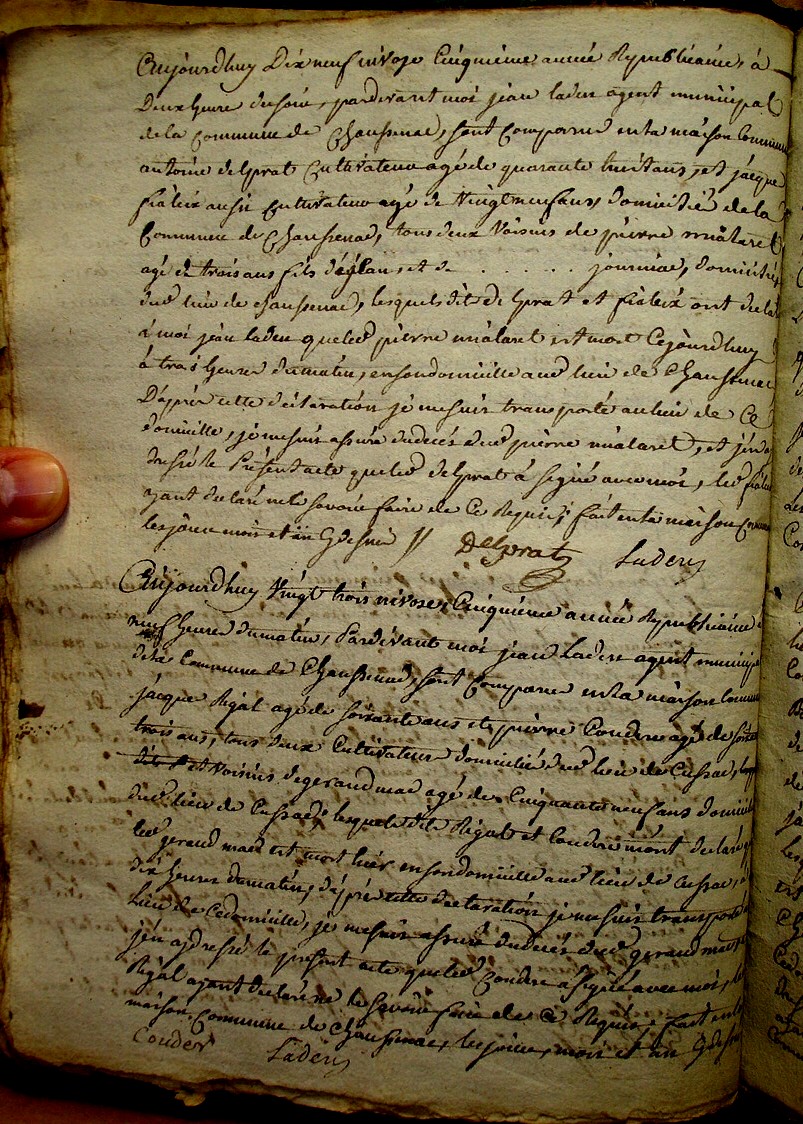 Aujourdhuy Dix neuf nivose Cinquieme année Republicaine, à
Deux heure du soir, pardevant moi jean laden agent municipal
de la Commune de Chaussenac, sont Comparus en la maison Commune
antoine delprat Cultivateur agé de quarante huit ans, et jacque
fialeix aussi Cultivateur agé de Vingt neuf ans, domicilié de la
Commune de Chaussenac, tous deux Voisins de pierre mialaret
agé de trois ans fils d'églan, et de . . . . . . journiac, domiciliés
dud lieu de chaussenac, lesquels dit delprat et fialeix ont decla
à moi jean laden que led pierre mialaret est mort Cejourdhuy
à trois heures du matin, en son domicille aud lieu de Chaussenac
D'après cette déclaration je me suis transporté au lieu de Ce
domicille, je me suis assuré du decés dud pierre mialaret, et j'en ai
dressé le Présent acte que led delprat à signé avec moi, led fialeix
ayant declaré ne le savoir faire de Ce Requis, fait en la maison Commune
les jour mois et an Qdessus // Delprat Laden
Aujourdhuy Vingt trois nivose, Cinquieme année Republicaine
neuf heures du matin, Pardevant moi jean Laden agent municipal
dela Commune de Chaussenac, sont Comparus en la maison Commune
jacque Rigal agé de soixante ans et pierre Couderc agé de soixante
trois ans, tous deux Cultivateur domicilié dud lieu de Cussac,
et Voisins de gerand mas agé de Cinquante neuf ans domicilié
dud lieu de Cussac, lesquels dits Rigal et Couderc m'ont declaré q
led gerand mas est mort hier en son domicille aud lieu de Cussac, à
dix heures du matin, d'après cette declaration je me suis transporté
lieu de Ce domicille, je me suis assuré du decés dud gerand mas,
j'en ay dressé le present acte que led Couderc à signé avec moi,
Rigal ayant declaré ne le savoir faire de Ce Requis, fait en la
maison Commune de Chaussenac, les jour, mois et an Qdessus
Couder Laden